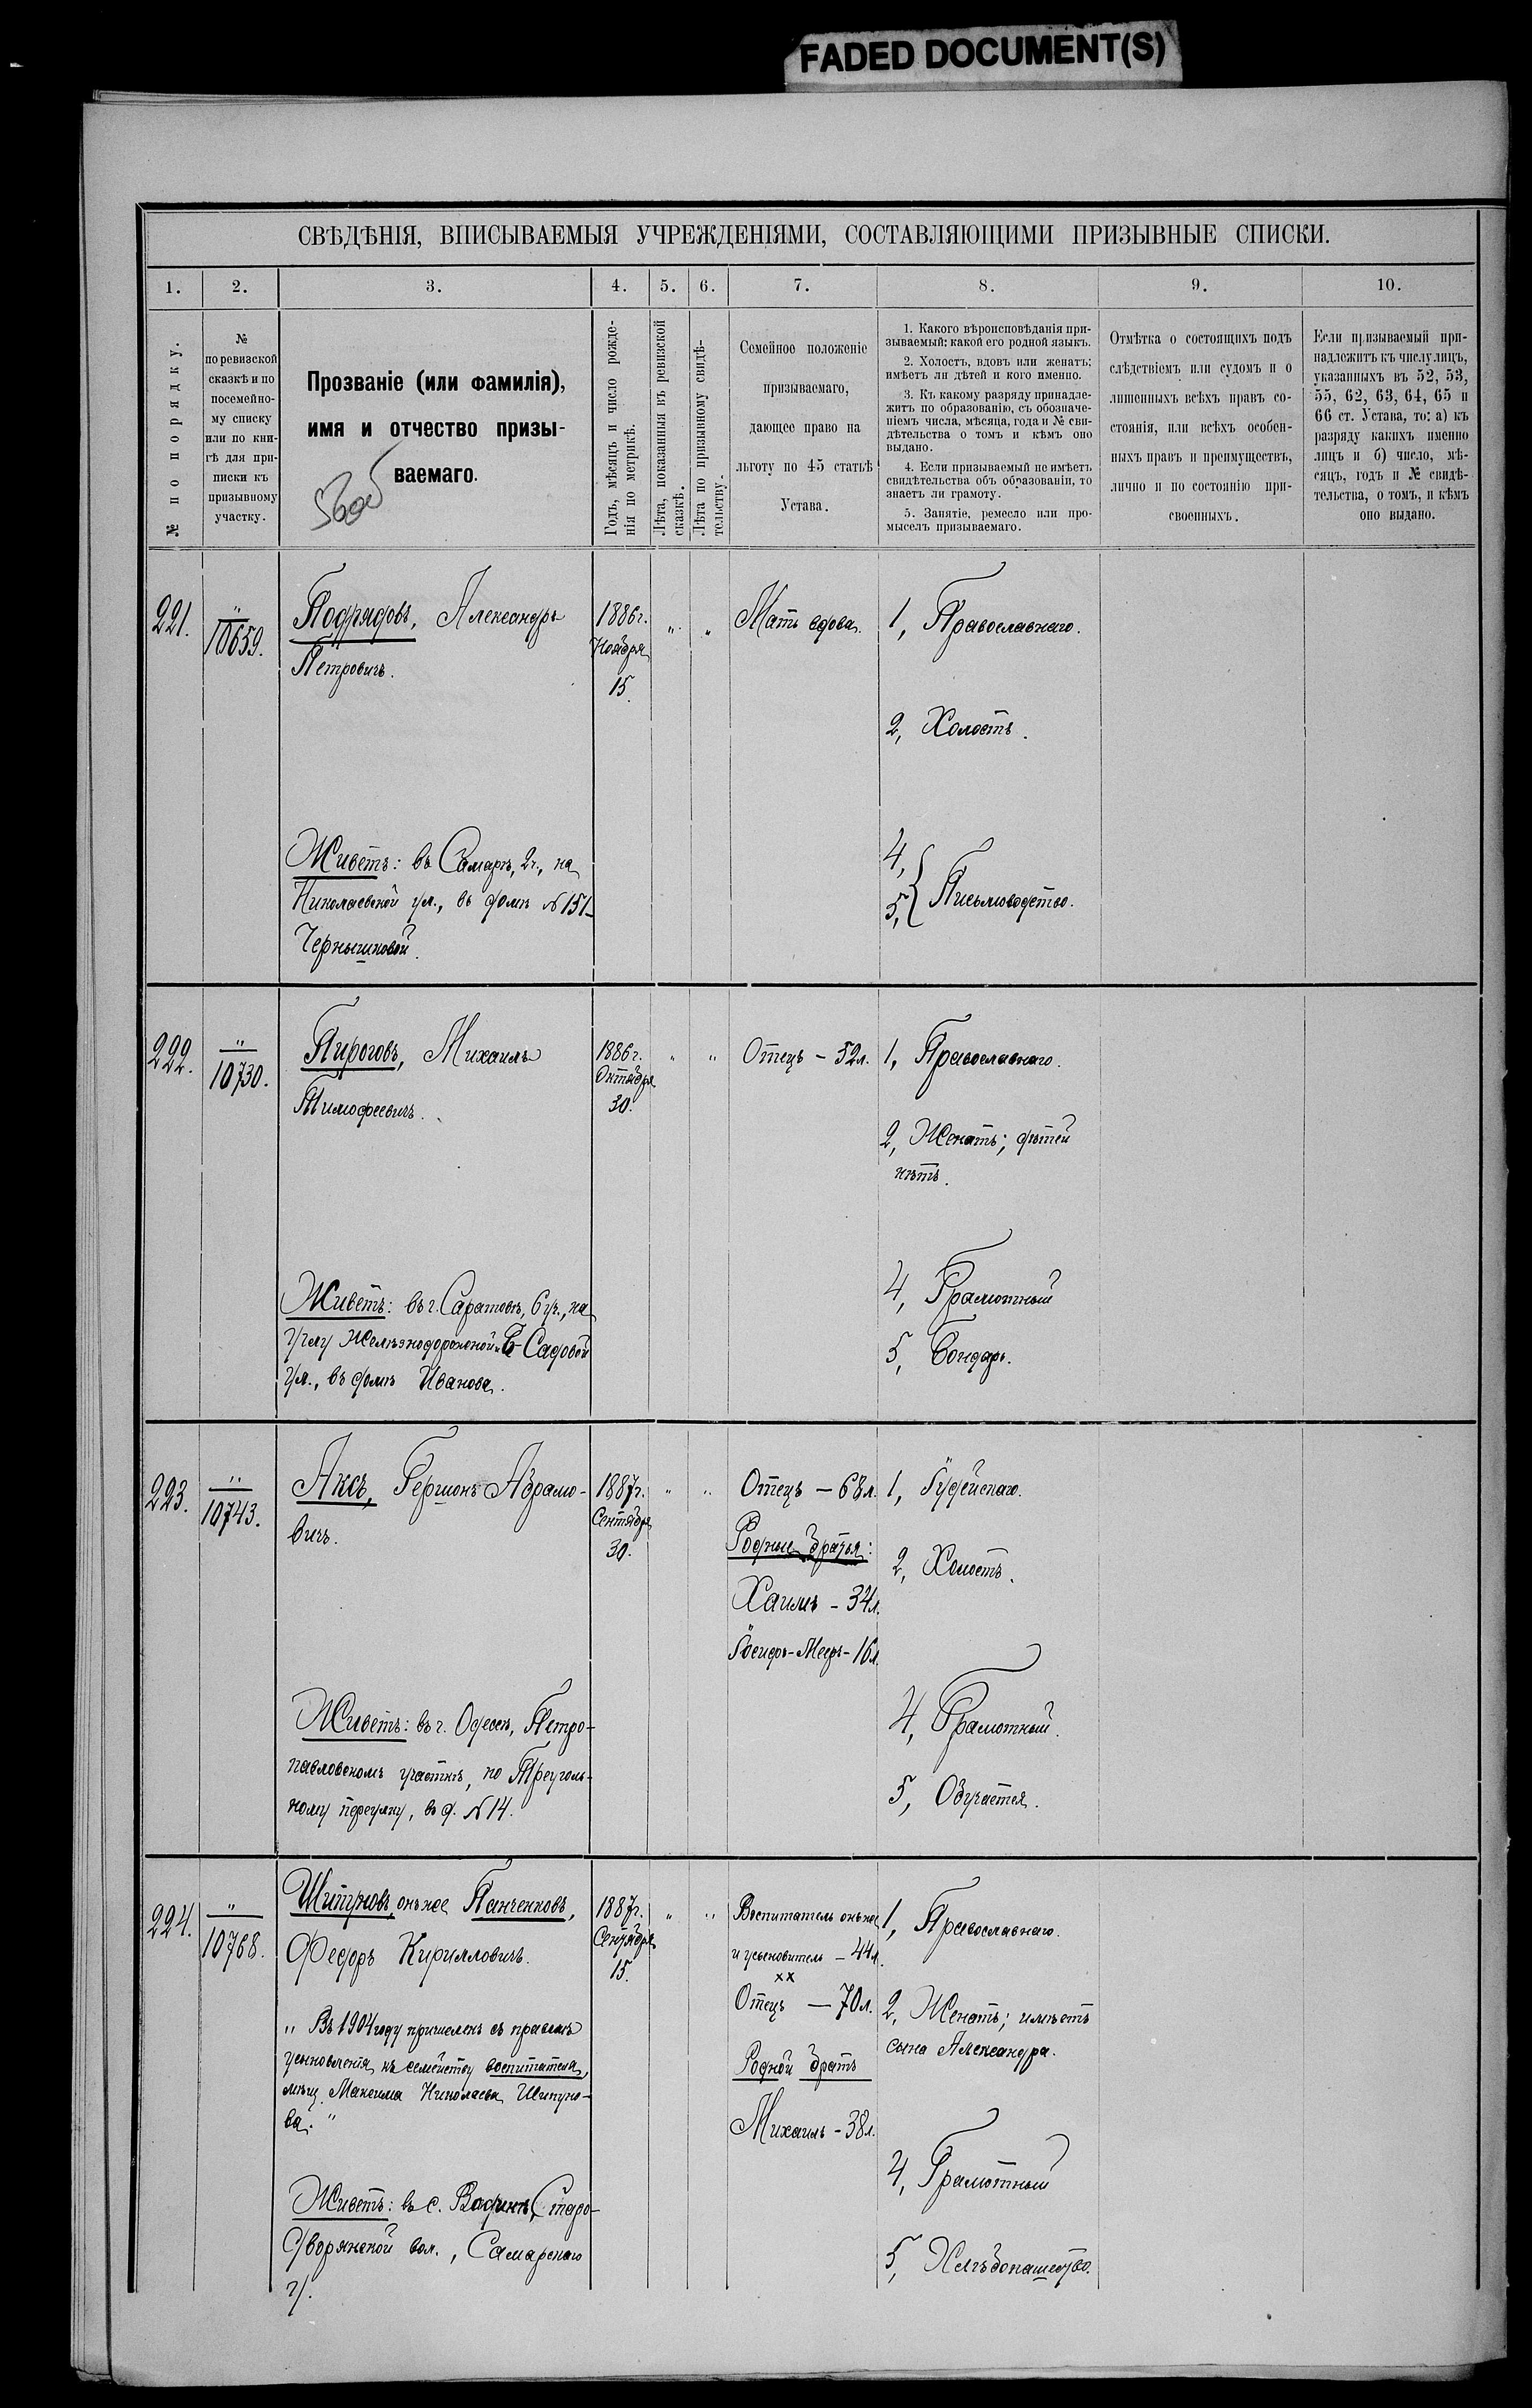 FADED DOCUMENT(S)
СВѢДѢНІЯ, ВПИСЫВАЕМЫЯ УЧРЕЖДЕНІЯМИ, СОСТАВЛЯЮЩИМИ ПРИЗЫВНЫЕ СПИСКИ.
1.
2.
3.
4.
5.
6.
7.
8.
9.
10.
№ по порядку.
№
по ревизской
сказкѣ и по
посемейно-
му списку
или по кни-
гѣ для при-
писки къ
призывному
участку.
Прозваніе (или фамилія),
имя и отчество призы-
ваемаго.
Годъ, мѣсяцъ и число рожде-
нія по метрикѣ.
Лѣта, показанныя въ ревизской
сказкѣ.
Лѣта по призывному свидѣ-
тельству.
Семейное положеніе
призываемаго,
дающее право на
льготу по 45 статьѣ
Устава.
1. Какого вѣроисповѣданія при-
зываемый: какой его родной языкъ.
2. Холостъ, вдовъ или женатъ;
имѣетъ ли дѣтей и кого именно.
3. Къ какому разряду принадле-
житъ по образованію, съ обозначе-
ніемъ числа, мѣсяца, года и № сви-
дѣтельства о томъ и кѣмъ оно
выдано.
4. Если призываемый не имѣетъ
свидѣтельства объ образованіи, то
знаетъ ли грамоту.
5. Занятіе, ремесло или про-
мыселъ призываемаго.
Отмѣтка о состоящихъ подъ
слѣдствіемъ или судомъ и о
лишенныхъ всѣхъ правъ со-
стоянія, или всѣхъ особен-
ныхъ правъ и преимуществъ,
лично и по состоянію при-
своенныхъ.
Если призываемый при-
надлежитъ къ числу лицъ,
указанныхъ въ 52, 53,
55, 62, 63, 64, 65 и
66 ст. Устава, то: а) къ
разряду какихъ именно
лицъ и б) число, мѣ-
сяцъ, годъ и № свидѣ-
тельства, о томъ, и кѣмъ
оно выдано.
221.
"
10659.
Подрядовъ, Александръ
Петровичъ.
Живетъ: въ Самарѣ, 2ч., на
Николаевской ул., въ домѣ №151
Чернышковой.
1886г.
Ноября
15.
"
"
Мать вдова.
1, Православнаго.
2, Холостъ.
4,
5, } Письмоводство.
222.
"
10730.
Пироговъ, Михаилъ
Тимофеевичъ.
Живетъ: въ г. Саратовѣ, 6уч., на
углу Желѣзнодорожной и Б Садовой
ул., въ домѣ Иванова.
1886г.
Октября
30.
"
"
Отецъ - 52л.
1, Православнаго.
2, Женатъ; дѣтей
нѣтъ.
4, Грамотный
5, Бондарь.
223.
"
10743.
Аксъ, Гершонъ Абрамо-
вичъ.
Живетъ: въ г. Одессѣ, Петро-
павловскомъ участкѣ, по Треуголь-
ному переулку, въ д. №14.
1887г.
Сентября
30.
"
"
Отецъ - 68л.
Родные братья:
Хаимъ - 34л.
Іосифъ-Мееръ-16л.
1, Іудейскаго.
2, Холостъ.
4, Грамотный.
5, Обучается.
224.
"
10768.
Шипуновъ, онъ же Панченковъ,
Федоръ Кирилловичъ.
" Въ 1904 году причисленъ съ правомъ
усыновленія къ семейству воспитателя,
мѣщ. Максима Николаева Шипуно-
ва. "
Живетъ: въ с. Старо-
Дворянской вол., Самарскаго
у.
1887г.
Сентября
15.
"
"
Воспитатель онъ же
и усыновитель - 44л.
xx
Отецъ - 70л.
Родной братъ
Михаилъ - 38л.
1, Православнаго.
2, Женатъ; имѣетъ
сына Александра.
4, Грамотный
5, Хлѣбопашество.